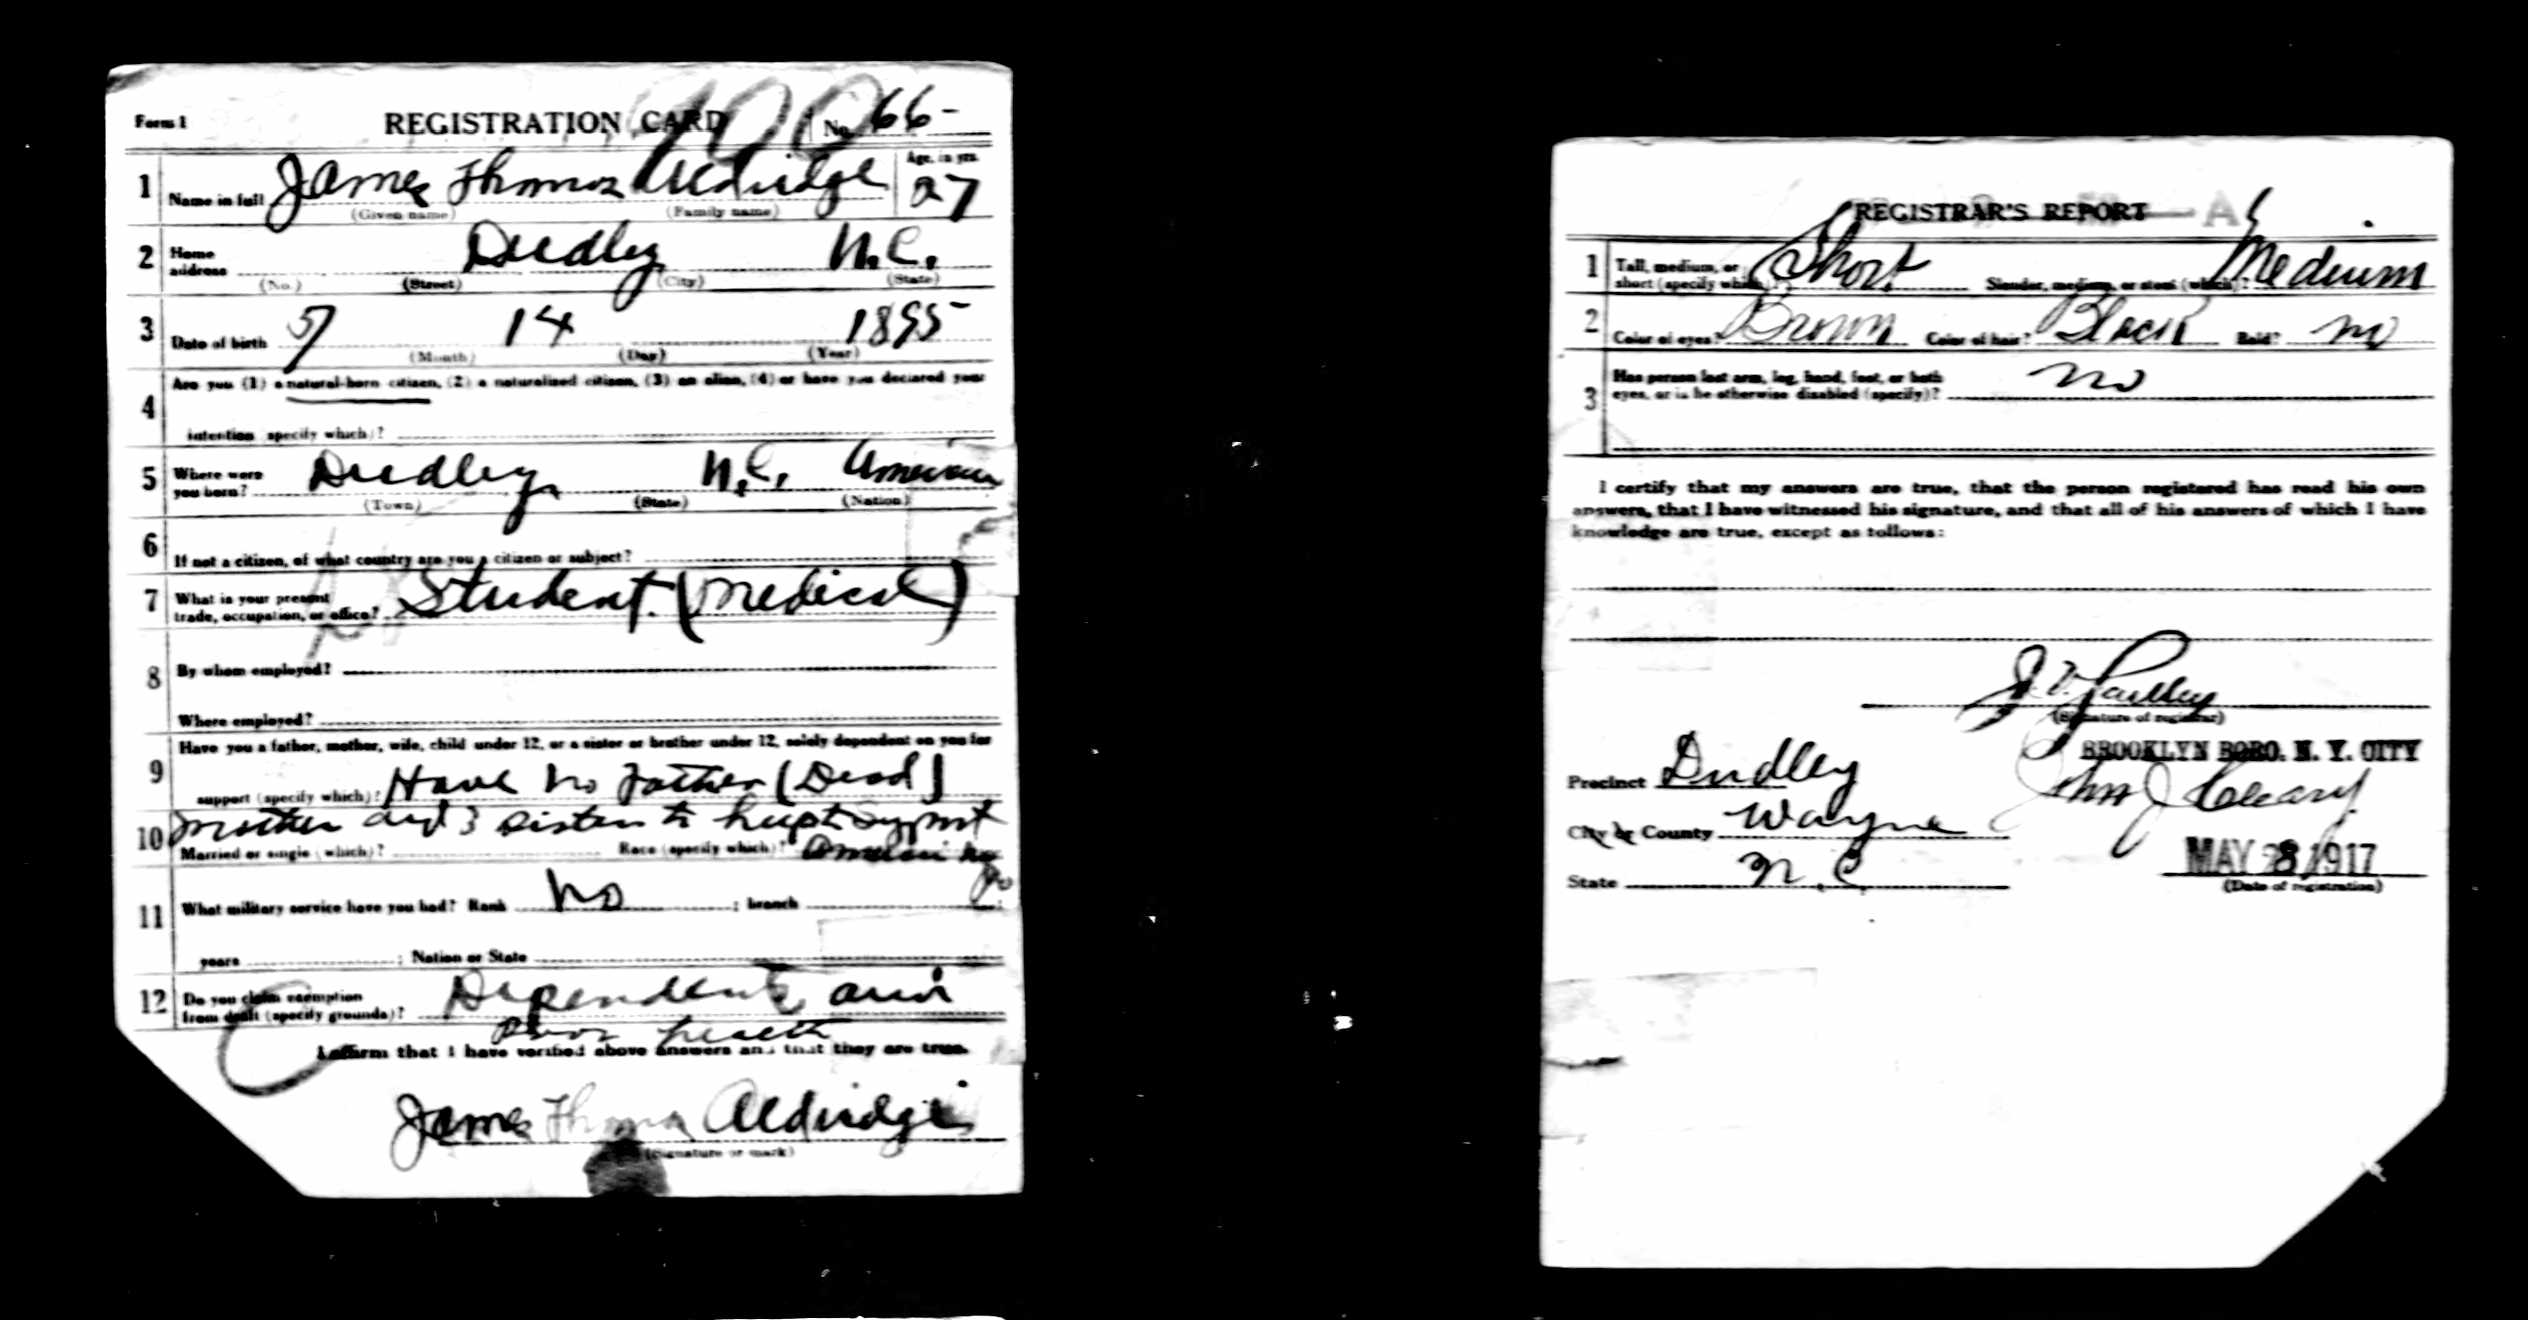 Form 1 REGISTRATION CARD No. 66-
1 Name in full James Thomas Aldridge Age, in yrs. 27
(Given name) (Family name)
2 Home address Dudley N.C.
(No.) (Street) (City) (State)
3 Date of birth 14
(Month) (Day) (Year)
4 Are you (1) a natural-born citizen, (2) a naturalized citizen, (3) an alien, (4) or have you declared your
intention (specify which)?
5 Where were you born? Dudley N.C. American
(Town) (State) (Nation)
6 If not a citizen, of what country are you a citizen or subject?
7 What is your present trade, occupation, or office? Student (Medical)
8 By whom employed?
Where employed?
9 Have you a father, mother, wife, child under 12, or a sister or brother under 12, solely dependent on you for
support (specify which)? Have no Father (Dead)
mother and 3 sisters to help support
10 Married or single (which)? Race (specify which)?
11 What military service have you had? Rank No ; branch ;
years ; Nation or State
12 Do you claim exemption from draft (specify grounds)? Dependents and
Poor health
I affirm that I have verified above answers and that they are true.
James Thomas Aldridge
(Signature or mark)
REGISTRAR'S REPORT
1 Tall, medium, or short (specify which)? Short Slender, medium, or stout (which)? Medium
2 Color of eyes? Brown Color of hair? Black Bald? no
3 Has person lost arm, leg, hand, foot, or both eyes, or is he otherwise disabled (specify)? no
I certify that my answers are true, that the person registered has read his own
answers, that I have witnessed his signature, and that all of his answers of which I have
knowledge are true, except as follows:
(Signature of registrar)
BROOKLYN BORO. N. Y. CITY
Precinct Dudley
John J Cleary
City or County Wayne
State N.C. MAY 1917
(Date of registration)